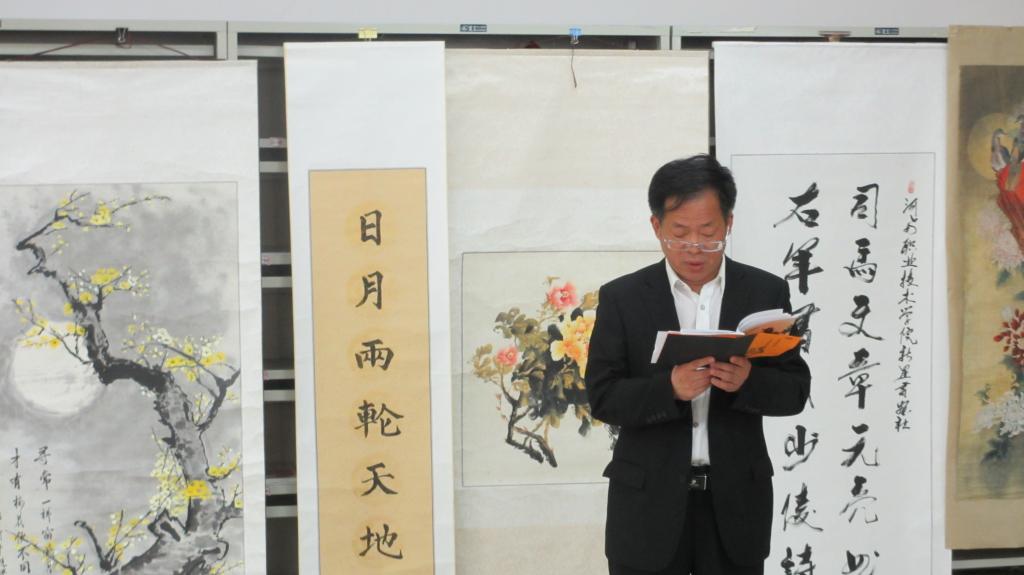 日月兩輪天地
河南职业技术学院翰墨书画社
司馬文章元亮
右軍書法少陵詩
寻常一样窗
才有梅花便不同